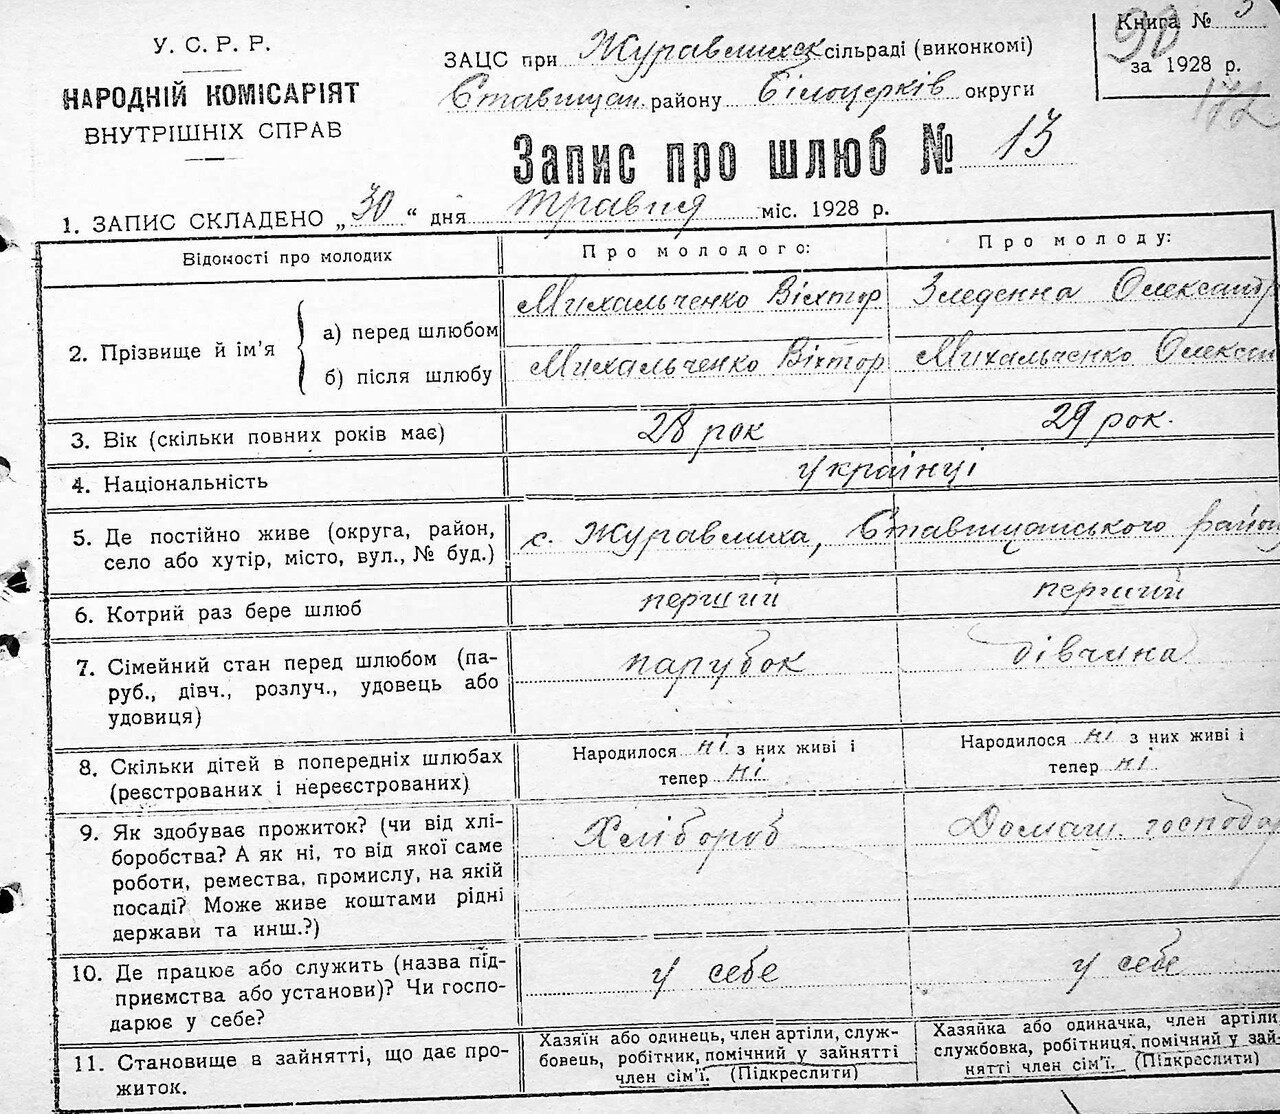 У. С. Р. Р.
НАРОДНІЙ КОМІСАРІЯТ
ВНУТРІШНІХ СПРАВ
Книга № 3
90
за 1928 р.
172
ЗАЦС при Журавлихск сільраді (виконкомі)
Ставищан. району Білоцерків округи
Запис про шлюб № 13
1. ЗАПИС СКЛАДЕНО „30“ дня травня міс. 1928 р.
Відомості про молодих
Про молодого:
Про молоду:
2. Прізвище й ім'я
а) перед шлюбом
Михальченко Віктор
Зледенна Олександр
б) після шлюбу
Михальченко Віктор
Михальченко Олексан
3. Вік (скільки повних років має)
28 рок
29 рок.
4. Національність
українці
5. Де постійно живе (округа, район,
село або хутір, місто, вул., № буд.)
с. Журавлиха, Ставищанського району
6. Котрий раз бере шлюб
перший
перший
7. Сімейний стан перед шлюбом (па-
руб., дівч., розлуч., удовець або
удовиця)
парубок
дівчина
8. Скільки дітей в попередніх шлюбах
(реєстрованих і нереєстрованих)
Народилося ні з них живі і
тепер ні
Народилося ні з них живі і
тепер ні
9. Як здобуває прожиток? (чи від хлі-
боробства? А як ні, то від якої саме
роботи, ремества, промислу, на якій
посаді? Може живе коштами рідні
держави та инш.?)
Хлібороб
Домаш. господар
10. Де працює або служить (назва під-
приємства або установи)? Чи госпо-
дарює у себе?
у себе
у себе
11. Становище в зайнятті, що дає про-
житок.
Хазяїн або одинець, член артіли, служ-
бовець, робітник, помічний у зайнятті
член сім'ї. (Підкреслити)
Хазяйка або одиначка, член артіли,
службовка, робітниця, помічний у зай-
нятті член сім'ї. (Підкреслити)